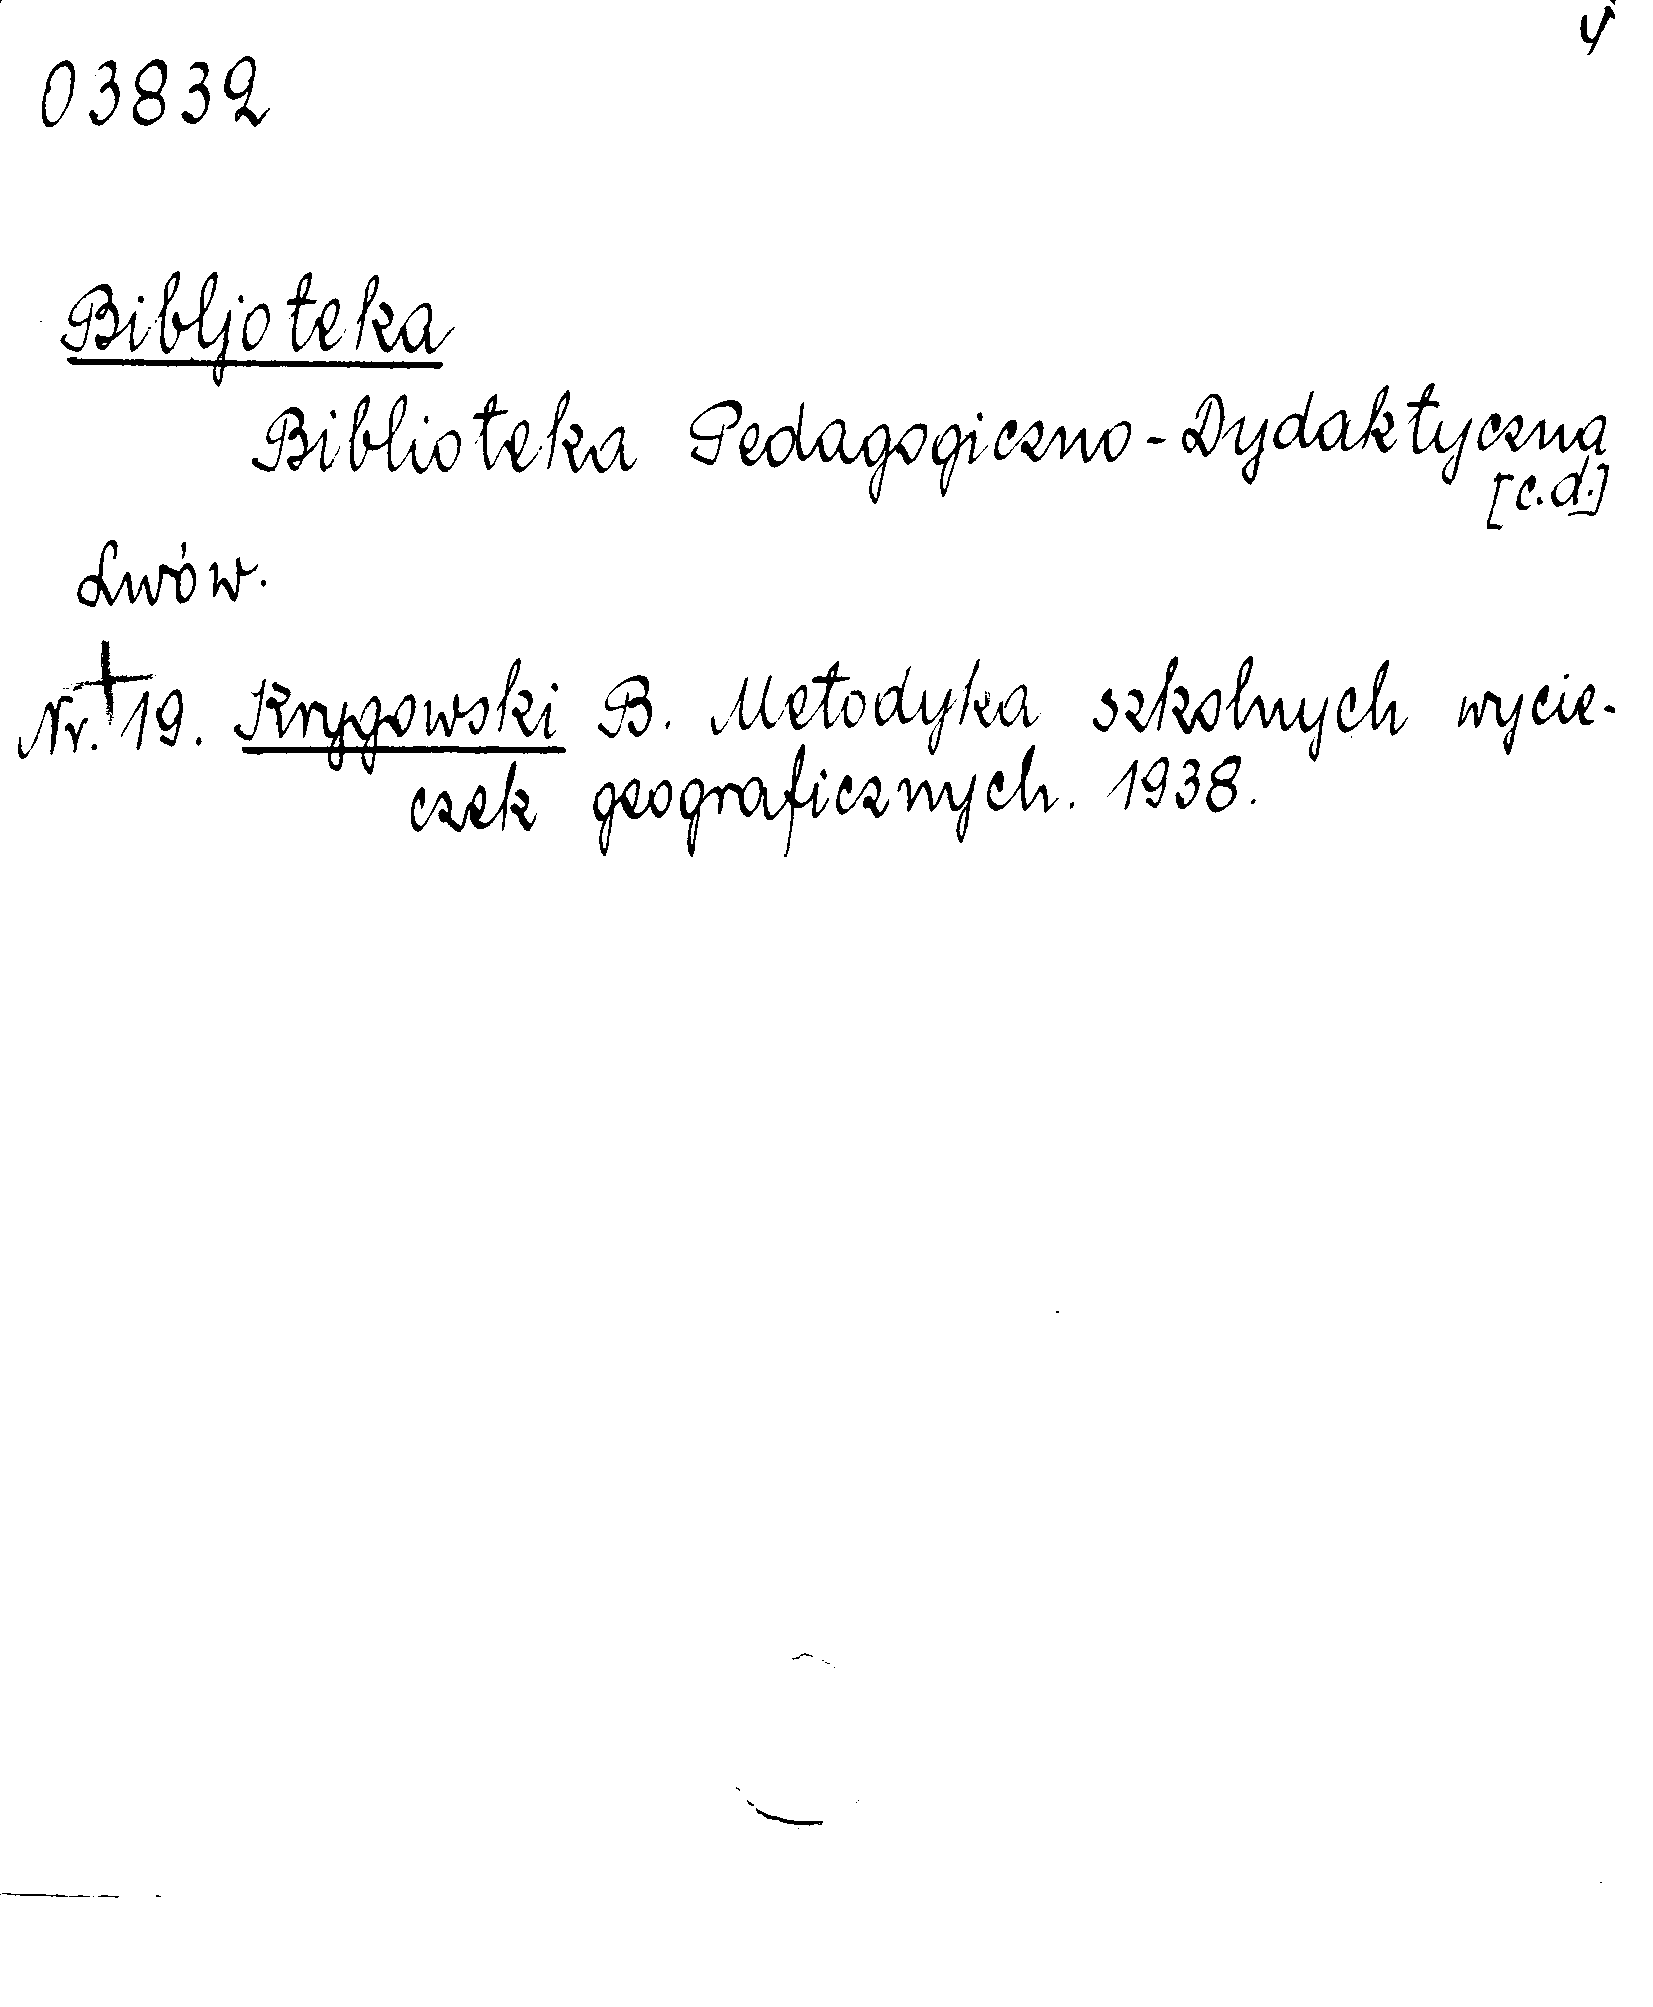 03832
Bibljoteka
Biblioteka Pedagogiczno-Dydaktyczna
[c.d.]
Lwów.
Nr. 19. Krygowski B. Metodyka szkolnych wycie-
czek geograficznych. 1938.